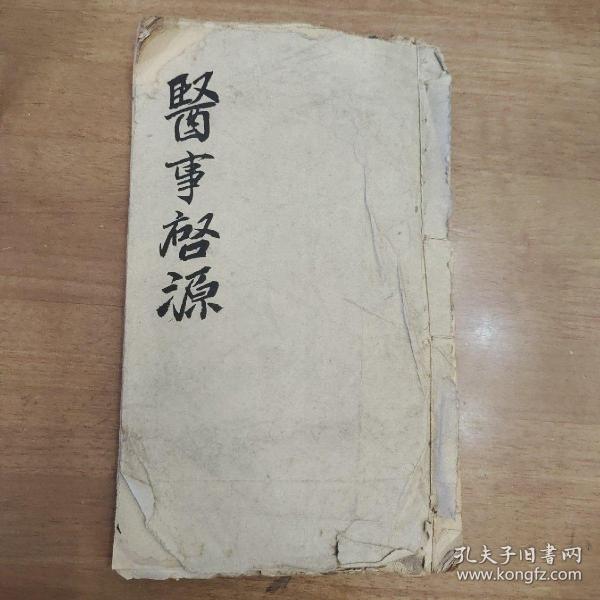 醫事啓源
孔夫子旧書网
www.kongfz.com